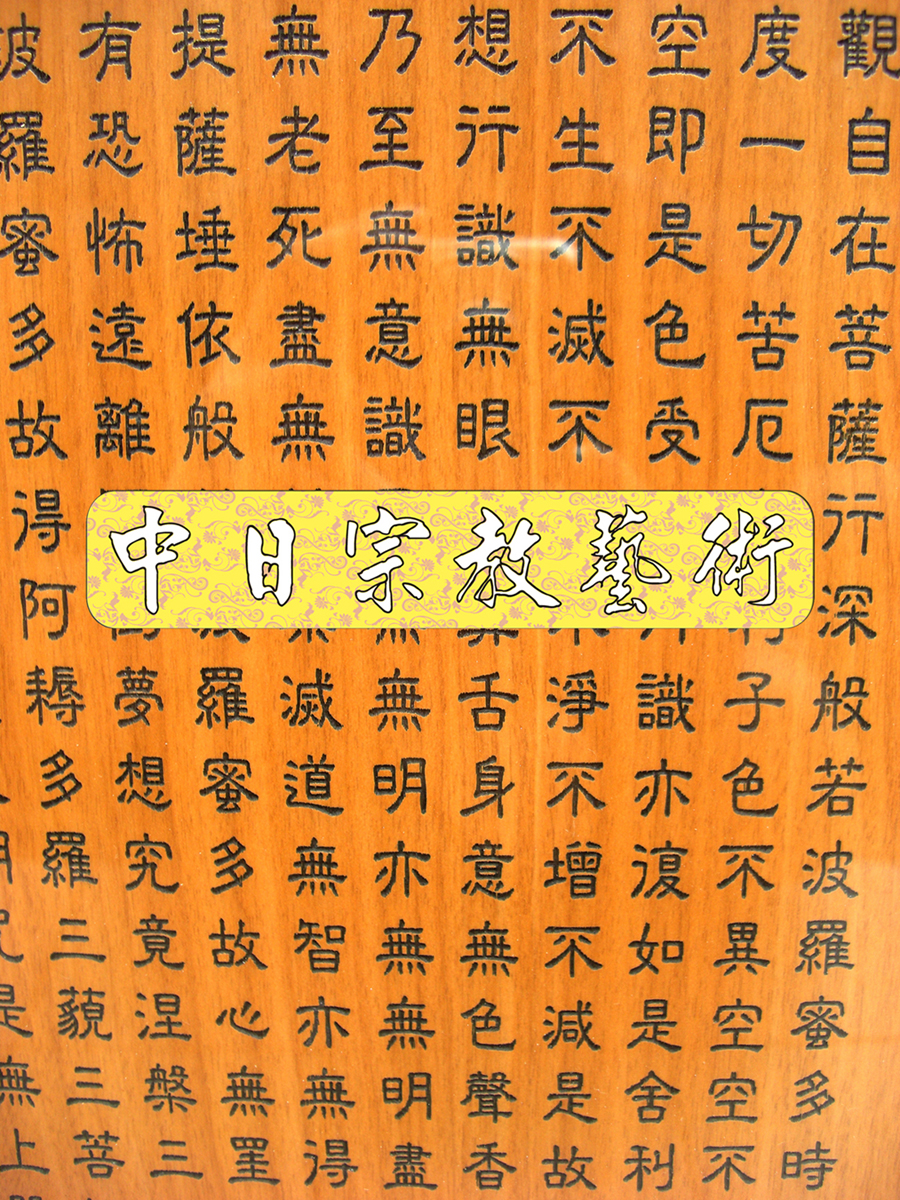 中日宗教藝術
觀自在菩薩行深般若波羅蜜多時
度一切苦厄 利子色不異空空不
空即是色受 識亦復如是舍利
不生不滅不 不淨不增不減是故
想行識無眼 鼻舌身意無色聲香
乃至無意識 無無明亦無無明盡
無老死盡無 滅道無智亦無得
提薩埵依般 波羅蜜多故心無罣
有恐怖遠離 夢想究竟涅槃三
波羅蜜多故得阿耨多羅三藐三菩
是無上